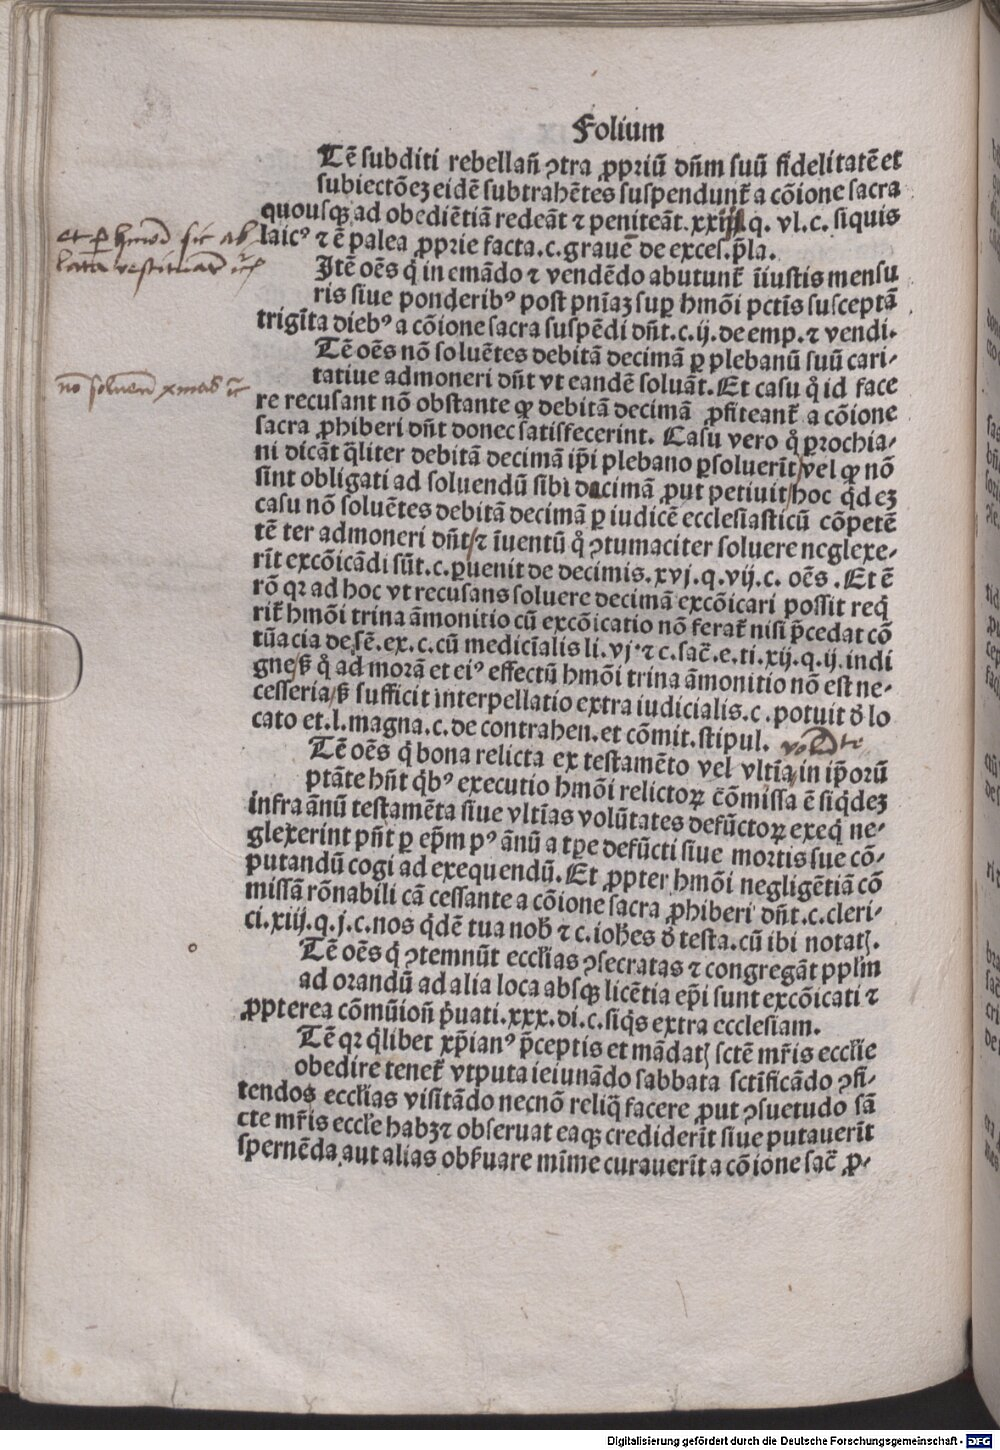 Folium
Tē subditi rebellañ ↄtra ꝓpriū dñm suū fidelitatē et
subiectōeꝫ eidē subtrahētes suspendunt᷑ a cōione sacra
quousqꝫ ad obediētiā redeāt ⁊ peniteāt.xxiij.q. vl.c. siquis
laicꝰ ⁊ ē palea ꝓprie facta.c.grauē de exces.p̄la.
et ꝑ hmōd sic ab
lata restituat᷑ ⁊c̄
Itē oēs q̇ in emādo ⁊ vendēdo abutunt᷑ īiustis mensu
ris siue ponderibꝰ post pn̄iaꝫ suꝑ hmōi pctīs susceptā
trigīta diebꝰ a cōione sacra suspēdi dn̄t.c.ij.de emp.⁊ vendi.
Tē oēs nō soluētes debitā decimā ꝑ plebanū suū cari-
tatiue admoneri dn̄t vt eandē soluāt. Et casu q̊ id face
nō soluent᷑ xmas ⁊c̄
re recusant nō obstante qꝙ debitā decimā ꝓfiteant᷑ a cōione
sacra ꝓhiberi dn̄t donec satisfecerint. Casu vero q̊ ꝑrochia-
ni dicāt q̄liter debitā decimā ip̄i plebano ꝑsoluerīt/vel ꝙ nō
sint obligati ad soluendū sibi decimā ꝓut petiuit/hoc q̇deꝫ
casu nō soluētes debitā decimā ꝑ iudicē ecclesiasticū cōpetē
tē ter admoneri dn̄t/⁊ īuentū q̊ ↄtumaciter soluere neglexe-
rīt excōicādi sūt.c.ꝑuenit de decimis.xvj.q.vij.c. oēs. Et ē
rō qꝛ ad hoc vt recusans soluere decimā excōicari possit req̇
rit᷑ hmōi trina āmonitio cū excōicatio nō ferat᷑ nisi p̄cedat cō
tūacia de sē.ex.c.cū medicīalis li.vj.⁊ c.sac̄.e.ti.xij.q.ij.indi
gne/ß q̊ ad morā et eiꝰ effectū hmōi trina āmonitio nō est ne-
cessaria/ß sufficit interpellatio extra iudicialis.c.potuit ð lo
cato et.l.magna.c.de contrahen.et cōmit.stipul.
Tē oēs q̇ bona relicta ex testamēto vel vltīa/in ip̄oꝛū
ptāte hn̄t q̇bꝰ executio hmōi relictoꝝ cōmissa ē siq̇deꝫ
infra ānū testamēta siue vltīas volūtates defūctoꝝ exeq̇ ne-
glexerint pn̄t ꝑ ep̄m pꝰ ānū a tꝑe defūcti siue mortis sue cō-
putandū cogi ad exequendū. Et ꝓpter hmōi negligētiā cō
missā rōnabili cā cessante a cōione sacra ꝓhiberi dn̄t.c.cleri-
ci.xiij.q.j.c.nos q̇dē tua nob̄ ⁊ c.ioh̄es ð testa.cū ibi notatꝭ.
Tē oēs q̇ ↄtemnūt eccl̄ias ↄsecratas ⁊ congregāt ppl̄m
ad orandū ad alia loca absqꝫ licētia ep̄i sunt excōicati ⁊
ꝓpterea cōmūioñ ṗuati.xxx.di.c.siq̇s extra ecclesiam.
Tē qꝛ q̇libet xp̄ianꝰ p̄ceptis et mādatꝭ sctē mr̄is eccl̄ie
obedire tenet᷑ vtputa ieiunādo sabbata sctīficādo ↄfi-
tendos eccl̄ias visitādo necnō reliq̄ facere ꝓut ↄsuetudo sā
cte mr̄is eccl̄e habꝫ⁊ obseruat eaqꝫ crediderīt siue putauerīt
spernēda aut alias obẜuare mīme curauerīt a cōione sac̄ ꝓ-
Digitalisierung gefördert durch die Deutsche Forschungsgemeinschaft - DFG